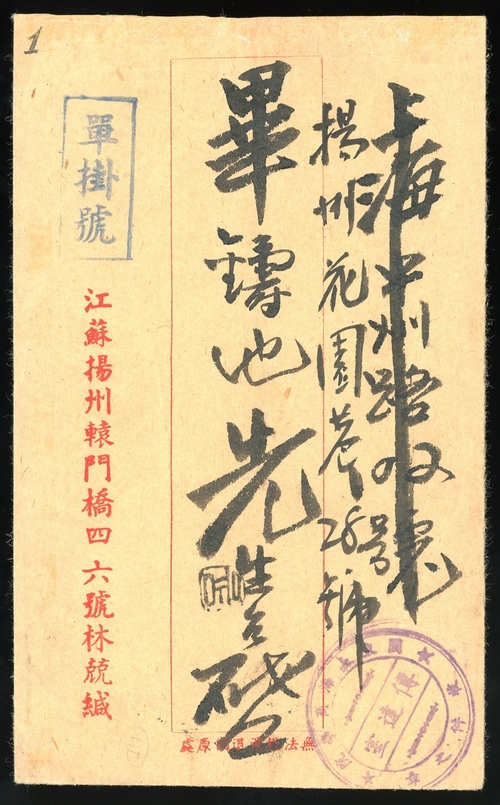 上海中州路号
揚州花園巷26號
畢鑄池先生台啟
單掛號
江蘇揚州轅門橋四六號林兢緘
無法投遞退回原處
傳達室
1